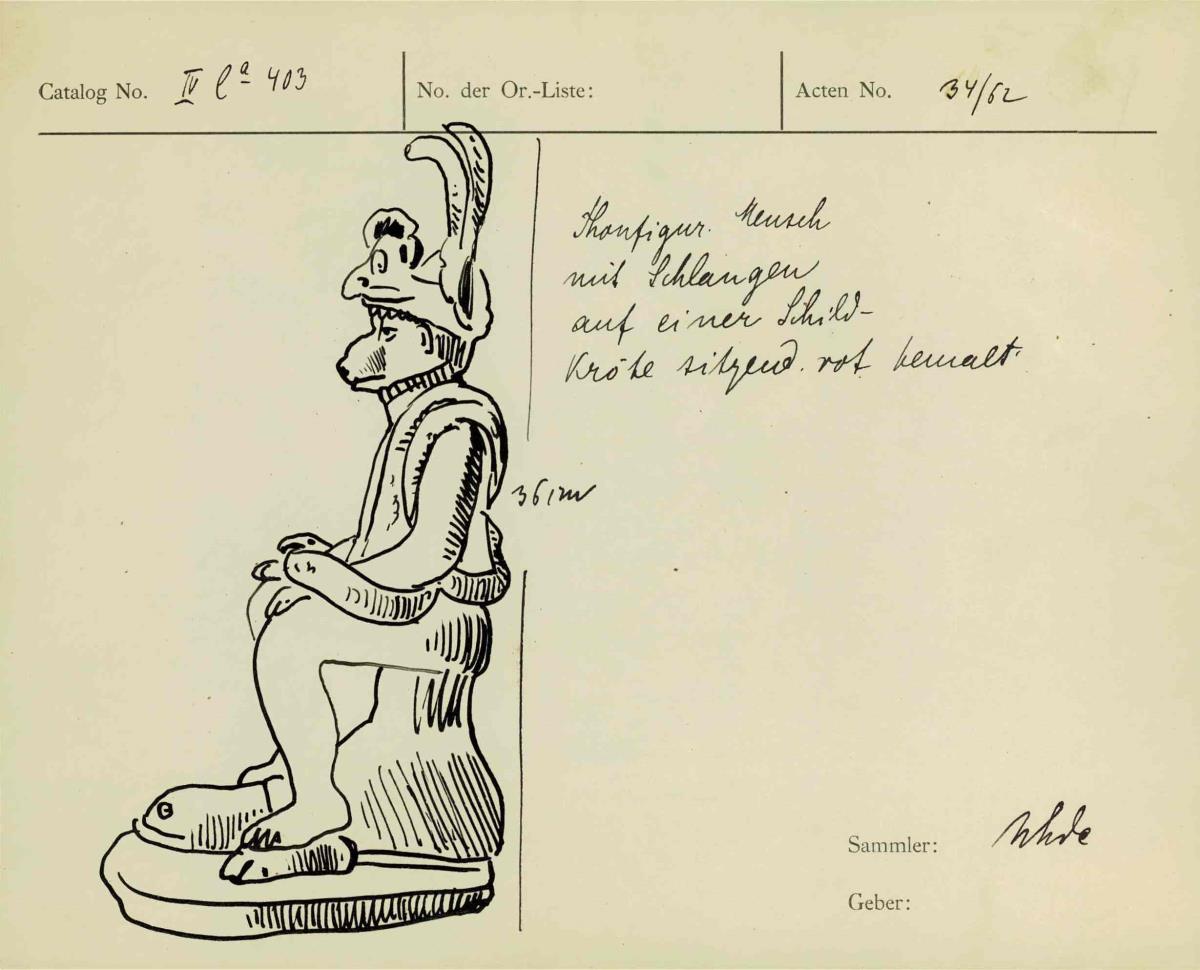 Catalog No. IV Ca 403
No. der Or.-Liste:
Acten No. 34/62
Thonfigur. Mensch
mit Schlangen
auf einer Schild-
kröte sitzend. rot bemalt.
36 cm
Sammler: Uhde
Geber: